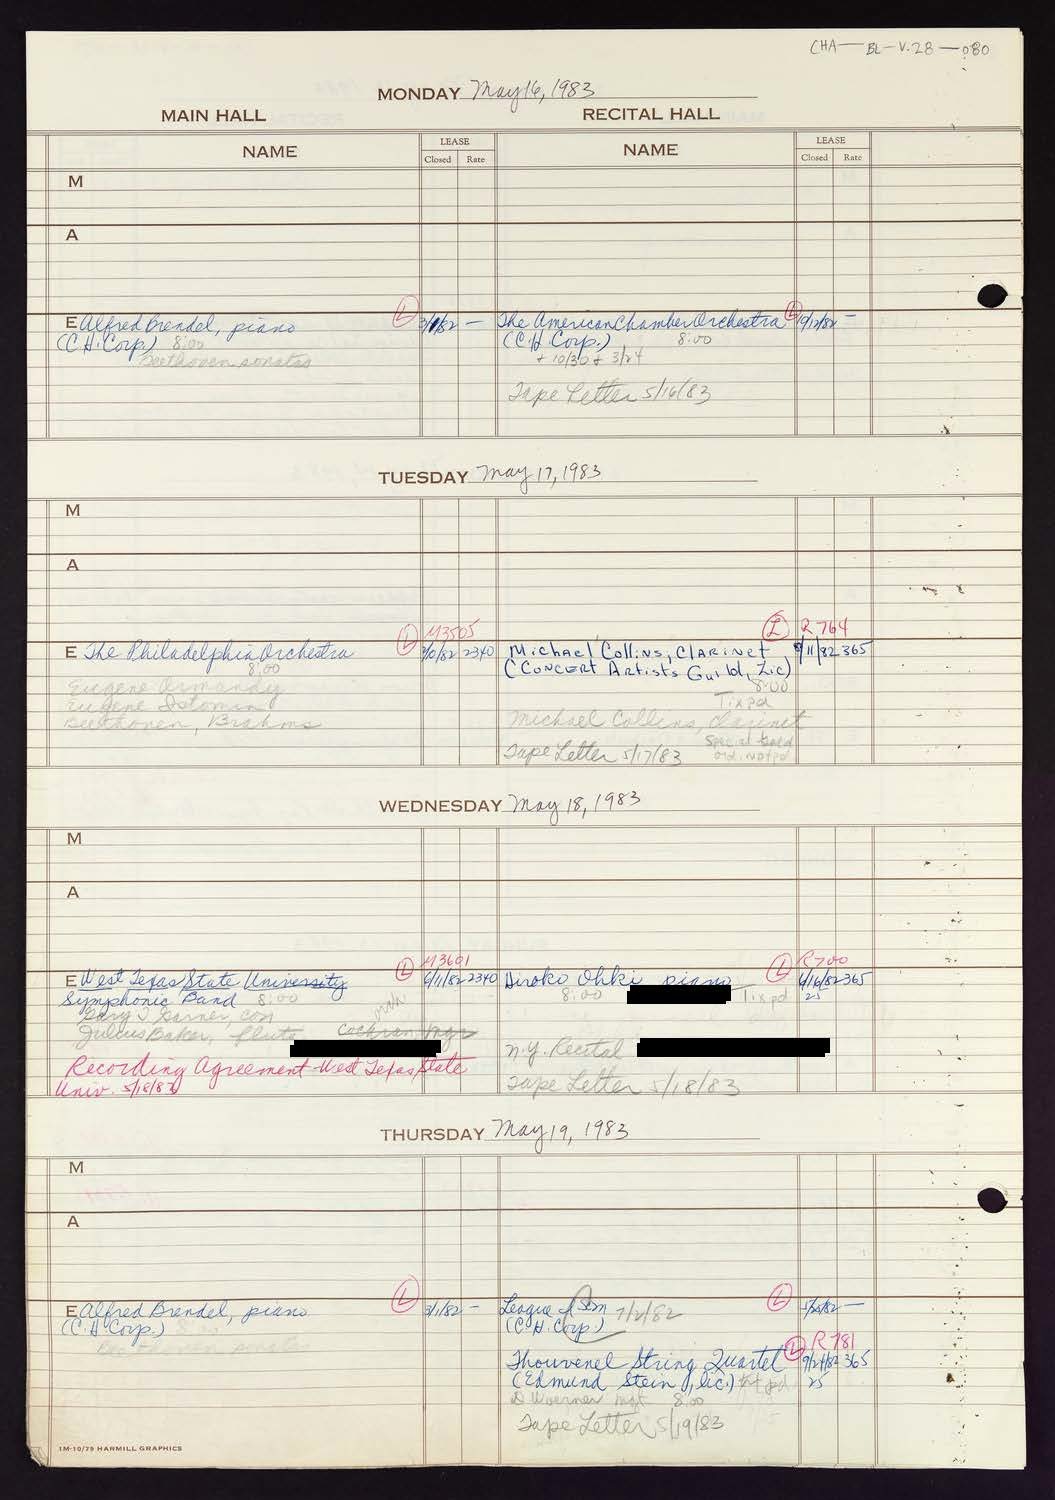 CHA—BL—V.28—080
MONDAY May 16, 1983
MAIN HALL
RECITAL HALL
NAME
LEASE
Closed Rate
NAME
LEASE
Closed Rate
M
A
E Alfred Brendel, piano
(C.H. Corp.) 8:00
Beethoven sonatas
L
3/1/82 —
The American Chamber Orchestra
(C.H. Corp.) 8:00
+ 10/30 + 3/24
Tape Letter 5/16/83
L
10/12/82 —
TUESDAY May 17, 1983
M
A
E The Philadelphia Orchestra
8:00
Eugene Ormandy
Eugene Istomin
Beethoven, Brahms
L
M3505
2340
Michael Collins, Clarinet
(Concert Artists Guild, Inc)
8:00
Tix pd
Michael Collins, clarinet
Special Gold
ord. not pd
Tape Letter 5/17/83
L
R764
/11/82 365
WEDNESDAY May 18, 1983
M
A
E West Texas State University
Symphonic Band 8:00
Gary T Garner, con
Julius Baker, flute
Cochran Mgr
Recording Agreement West Texas State
Univ. 5/18/83
L
M3601
6/11/82 2340
Hiroko Ohki piano
8:00
Tix pd
N.Y. Recital
Tape Letter 5/18/83
L
R700
6/16/82 365
25
THURSDAY May 19, 1983
M
A
E Alfred Brendel, piano
(C.H. Corp.) 8:00
Beethoven sonatas
L
3/1/82 —
League of Sem 7/2/82
(C.H. Corp.)
L
Thouvenel String Quartet
(Edmund Stein, Inc.) tix pd
D Woerner mgt 8:00
Tape Letter 5/19/83
L
R781
9/24/82 365
25
1M-10/79 HARMILL GRAPHICS